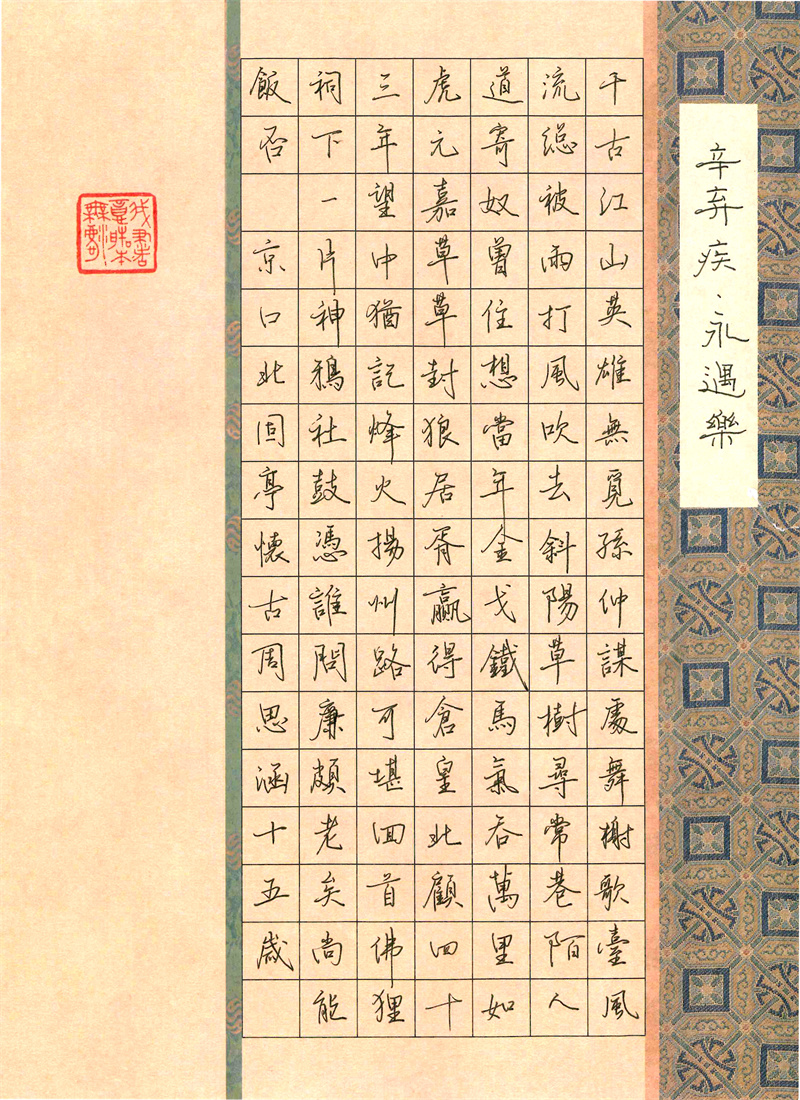 辛弃疾·永遇樂
千古江山英雄無覓孫仲謀處舞榭歌臺風
流總被雨打風吹去斜陽草樹尋常巷陌人
道寄奴曾住想當年金戈鐵馬氣吞萬里如
虎元嘉草草封狼居胥贏得倉皇北顧四十
三年望中猶記烽火揚州路可堪回首佛狸
祠下一片神鴉社鼓憑誰問廉頗老矣尚能
飯否 京口北固亭懷古周思涵十五歲